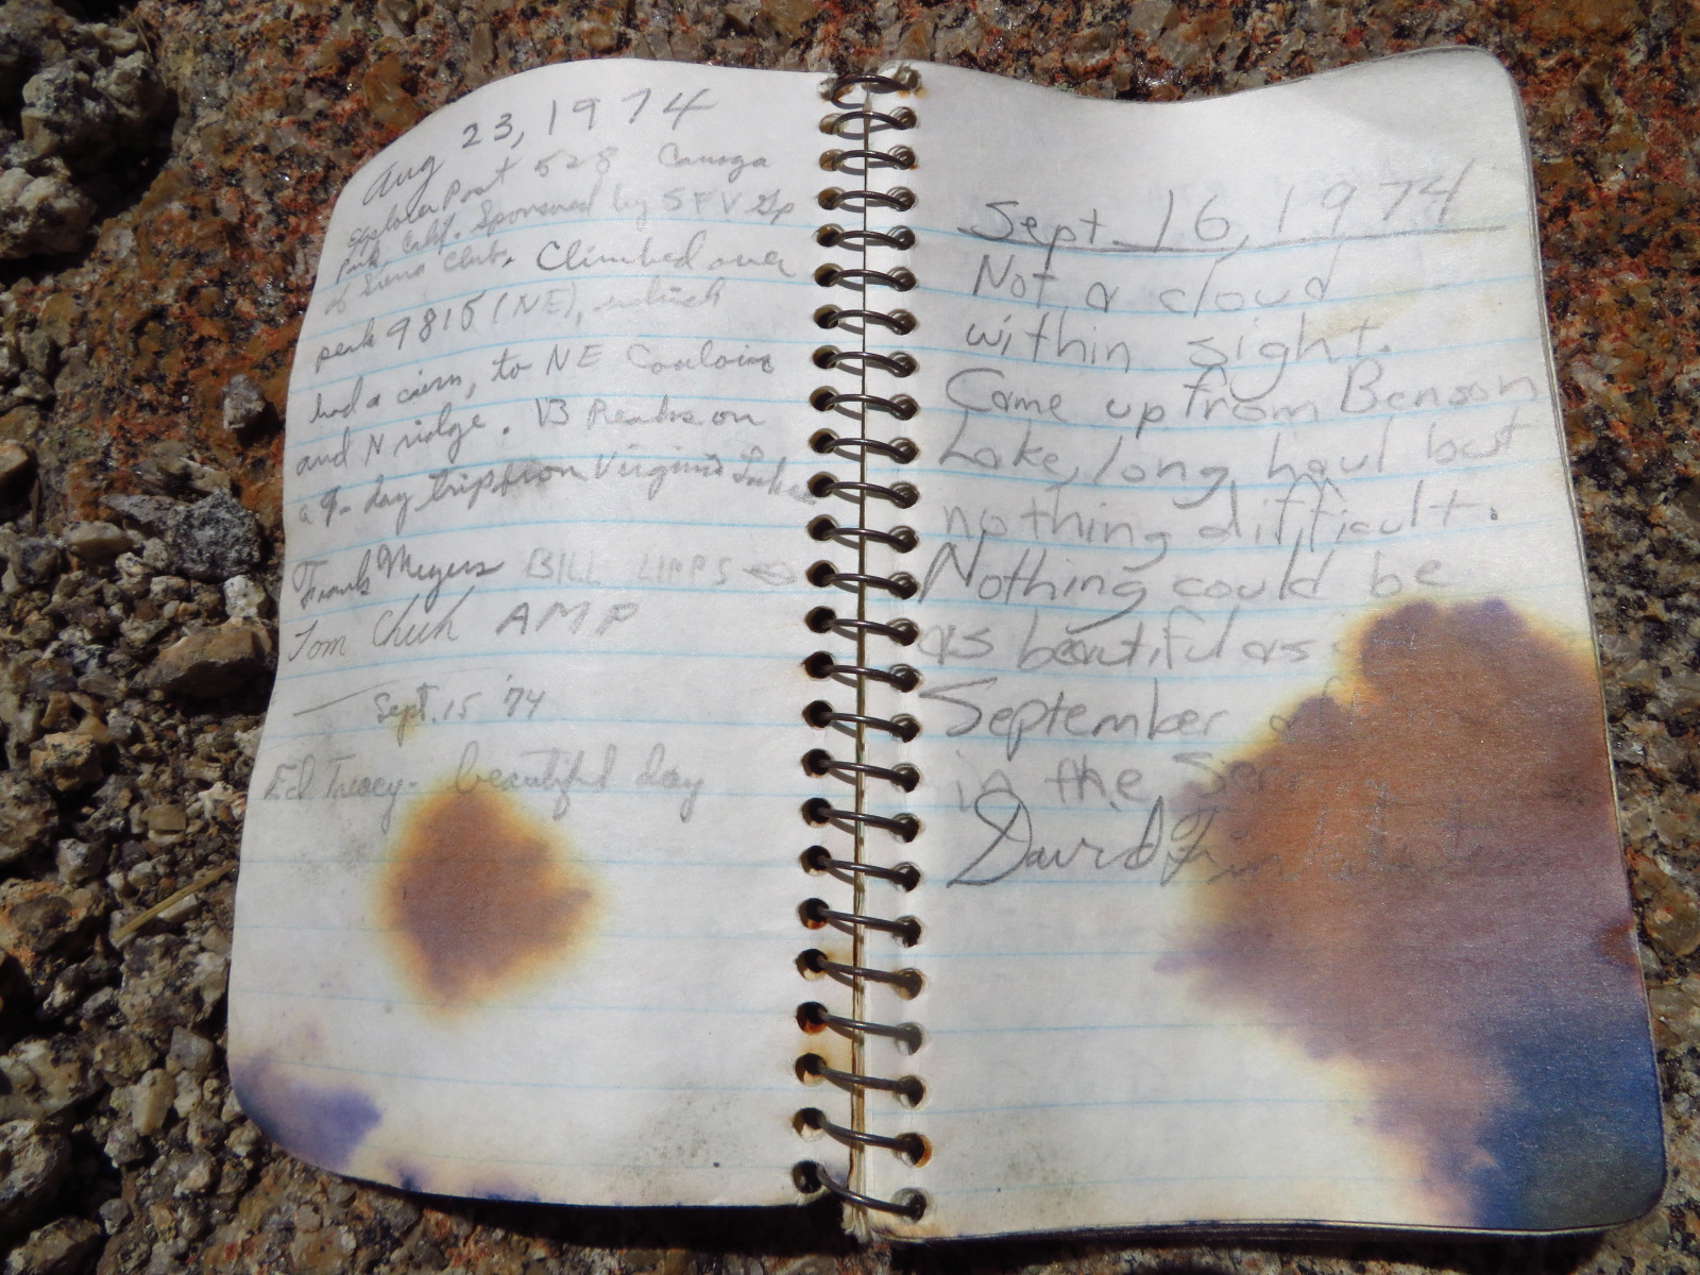 Aug 23, 1974
Explorer Post 528 Canoga
Park Calif. Sponsored by SFV Gp
of Sierra Club. Climbed over
peak 9815 (NE), which
had a cairn, to NE Couloir
and N ridge. VB Peaks on
a 9-day trip from Virginia Lakes
Frank Meyers BILL LIPPS
Tom Cheek AMP
Sept. 15 '74
Ed Treacy - beautiful day
Sept. 16, 1974
Not a cloud
within sight.
Came up from Benson
Lake, long haul but
nothing difficult.
Nothing could be
as beautiful as
September
in the
David